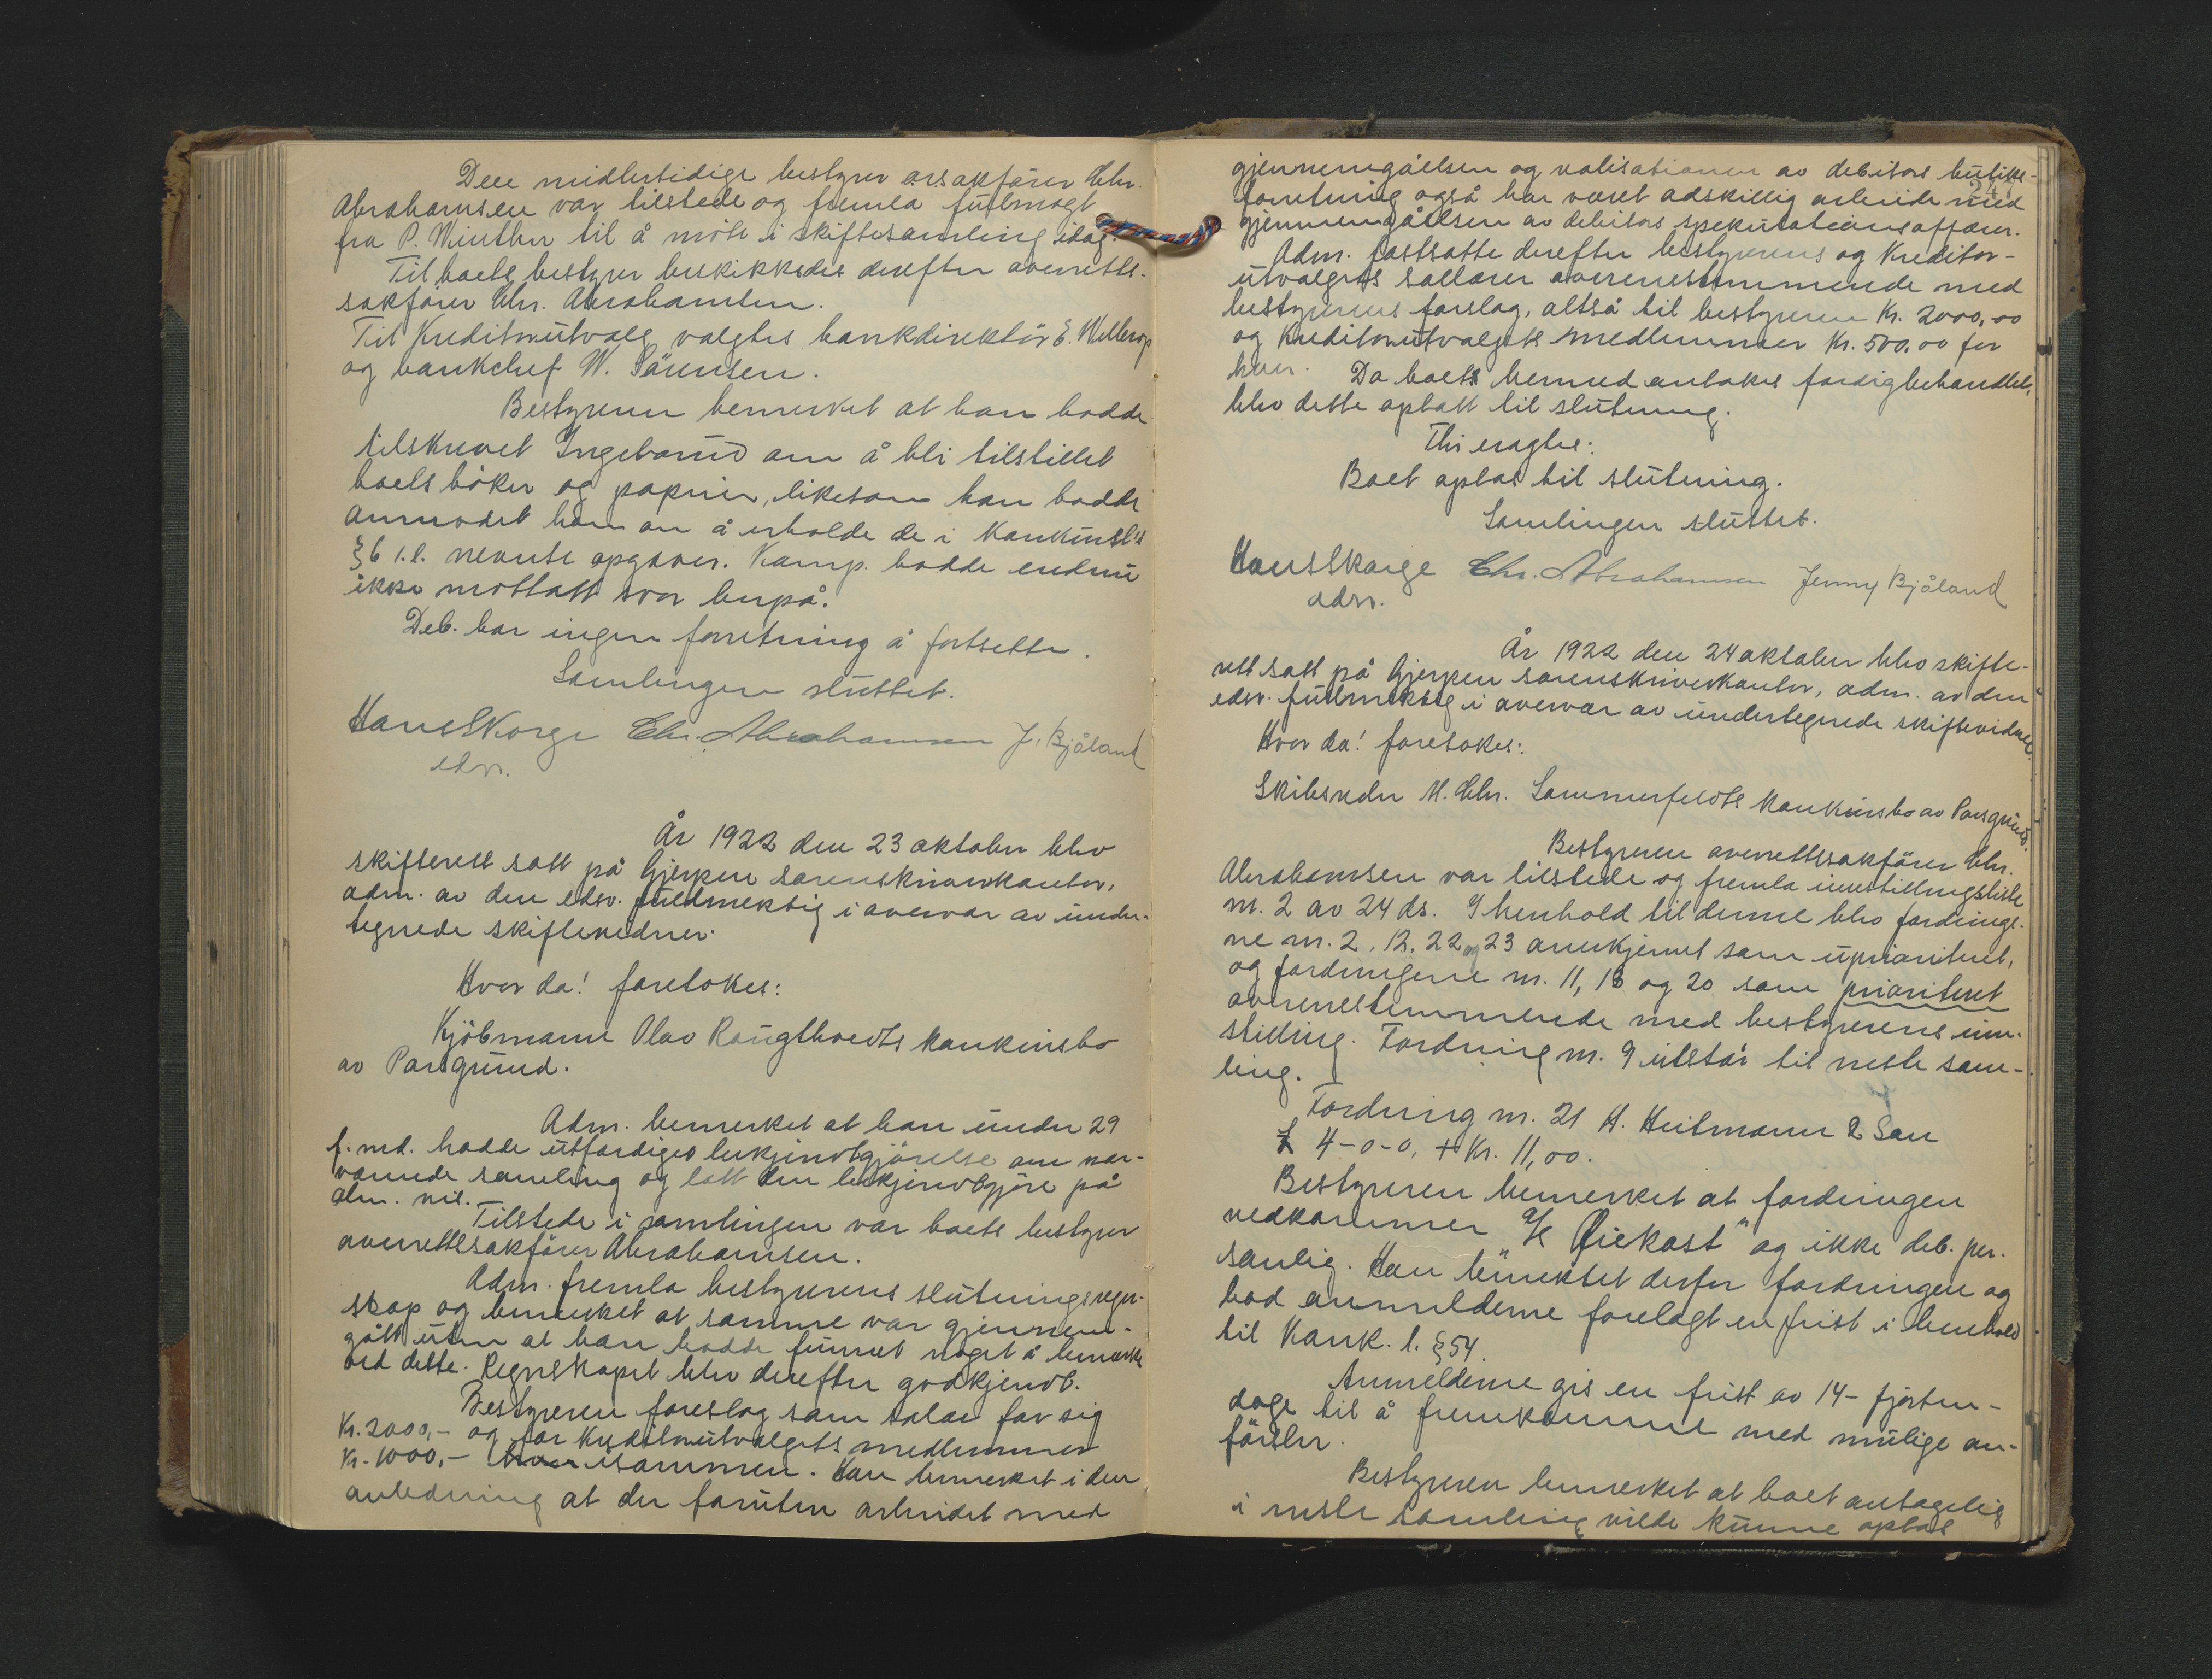 Den midlertidige bestyrer o.r.sakfører Chr.
Abrahamsen var tilstede og fremla fuldmagt
fra P. Winther til å møte i skiftesamling idag.
Til boets bestyrer beskikkedes derefter overretts-
sakfører Chr. Abrahamsen.
Til Kreditorutvalg valgtes bankdirektör E.
og bankchef W. Sörensen.
Bestyreren bemerket at han hadde
tilskrevet Ingebarud om å bli tilstillet
boets böker og papirer, likesom han hadde
anmodet ham om å utholde de i Konkursl's
§ 6 1.l. nevnte opgaver. Komp. hadde endnu
ikke mottatt svar herpå.
Deb. har ingen forretning å fortsette.
Samlingen sluttet.
Hans Skorge Chr. Abrahamsen J. Bjåland
edsv.
År 1922 den 23 oktober blev
skifterett satt på Gjerpen sorenskriverkontor,
adm. av den edsv. fuldmektig i overvær av under-
tegnede skiftevidner.
Hvor da! foretokes:
Kjöbmann Olav Raugthvedts konkursbo
av Porsgrund.
Adm. bemerket at han under 29
f. md. hadde utfærdiget bekjendtgjörelse om nær-
værende samling og latt den bekjendtgjöre på
alm. vis.
Tilstede i samlingen var boets bestyrer
overrettssakförer Abrahamsen.
Adm. fremla bestyrerens slutningsregn-
skap og bemerket at samme var gjennem-
gått uten at han hadde funnet noget å bemerke
ved dette. Regnskapet blev derefter godkjendt.
Bestyreren foreslog som salær for sig
Kr. 2000,- og for Kreditorutvalgets medlemmer
Kr. 1000,- hver sammen. Han bemerket i den
anledning at der foruten arbeidet med
gjennemgåelsen og realisationen av debitors butikk-
forretning også har været adskillig arbeide med
247
gjennemgåelsen av debitors spekulationsaffærer.
Adm. fastsatte derefter bestyrerens og Kreditor-
utvalgets sallærer overenstemmende med
bestyrerens forslag, altså til bestyreren Kr. 2000,00
og Kreditorutvalgets medlemmer Kr. 500,00 for
hver. Da boets hermed antokes færdigbehandlet,
blev dette optatt til slutning.
Thi eragtes:
Boet optas til slutning.
Samlingen sluttet.
Hans Skorge Chr. Abrahamsen Jenny Bjåland
edsv.
År 1922 den 24 oktober blev skifte-
rett satt på Gjerpen sorenskriverkontor, adm. av den
edsv. fuldmektig i overvær av undertegnede skiftevidner.
Hvor da! foretokes:
Skibsreder M. Chr. Sommerfeldts konkursbo av Porsgrund.
Bestyreren overrettssakförer Chr.
Abrahamsen var tilstede og fremla innstillingsliste
nr. 2 av 24 ds. I henhold til denne blev fordringe-
ne nr. 2, 12, 22 og 23 anerkjennet som uprioritert,
og fordringene nr. 11, 13 og 20 som prioritert
overenstemmende med bestyrerens inn-
stilling. Fordring nr. 9 utstår til neste sam-
ling.
Fordring nr. 21 H. Heitmann & Sön
£ 4-0-0, + Kr. 11,00.
Bestyreren bemerket at fordringen
vedkommer A/S "Öiekast" og ikke deb. per-
sonlig. Han benektet derfor fordringen og
bad anmelderne forelagt en frist i henhold
til Konk. l. § 54.
Anmelderne gis en frist av 14- fjorten-
dage til å fremkomme med mulige an-
försler.
Bestyreren bemerket at boet antagelig
i neste samling vilde kunne optas